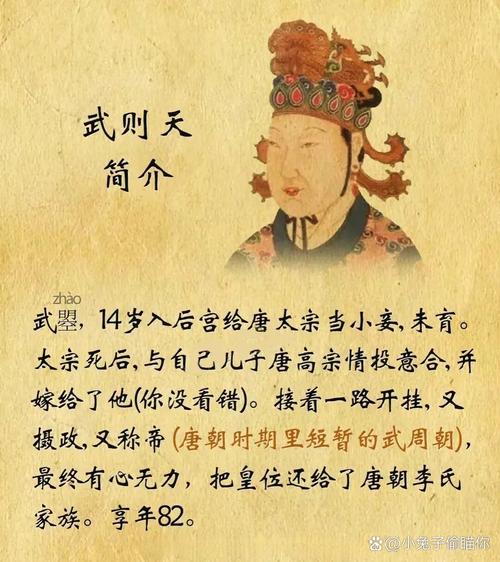 武则天
简介
zhào
武曌，14岁入后宫给唐太宗当小妾，未育。
太宗死后，与自己儿子唐高宗情投意合，并
嫁给了他(你没看错)。接着一路开挂，又
摄政，又称帝(唐朝时期里短暂的武周朝)，
最终有心无力，把皇位还给了唐朝李氏
家族。享年82。
@小兔子偷瞄你